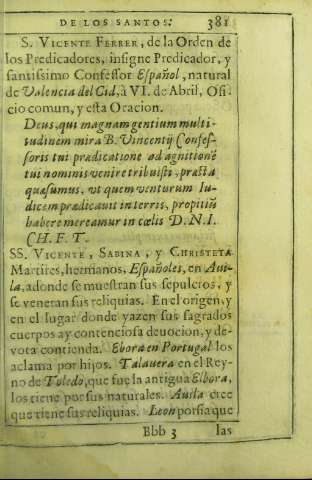 DE LOS SANTOS. 381
S. VICENTE FERRER, de la Orden de
los Predicadores, insigne Predicador, y
santissimo Confessor Español, natural
de Valencia del Cid, à VI. de Abril, Ofi
cio comun, y esta Oracion.
Deus, qui magnam gentium multi-
tudinem mira B. Vincentij Confes-
soris tui prædicatione ad agnitionẽ
tui nominis venire tribuisti, præsta
quæsumus, vt quem venturum Iu-
dicem prædicauit in terris, propitiũ
habere mereamur in cœlis D. N. I.
CH. F. T.
SS. VICENTE, SABINA, y CHRISTETA
Martires, hermanos, Españoles, en Aui-
la, adonde se muestran sus sepulcros, y
se veneran sus reliquias. En el origen, y
en el lugar donde yazen sus sagrados
cuerpos ay contenciosa deuocion, y de-
vota contienda. Ebora en Portugal los
aclama por hijos. Talauera en el Rey-
no de Toledo, que fue la antigua Elbora,
los tiene por sus naturales. Auila cree
que tiene sus reliquias. Leon porfia que
Bbb 3 las